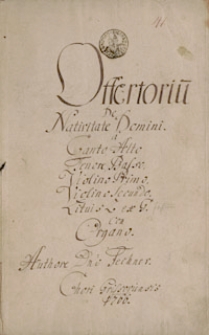 Offertoriū
De
Nativitate Domini.
a
Canto Alto
Tenore Basso,
Violino Primo,
Violino Secundo,
Lituis 2 ex G.
Con
Organo.
Authore Dno Fechner.
Chori
1766.